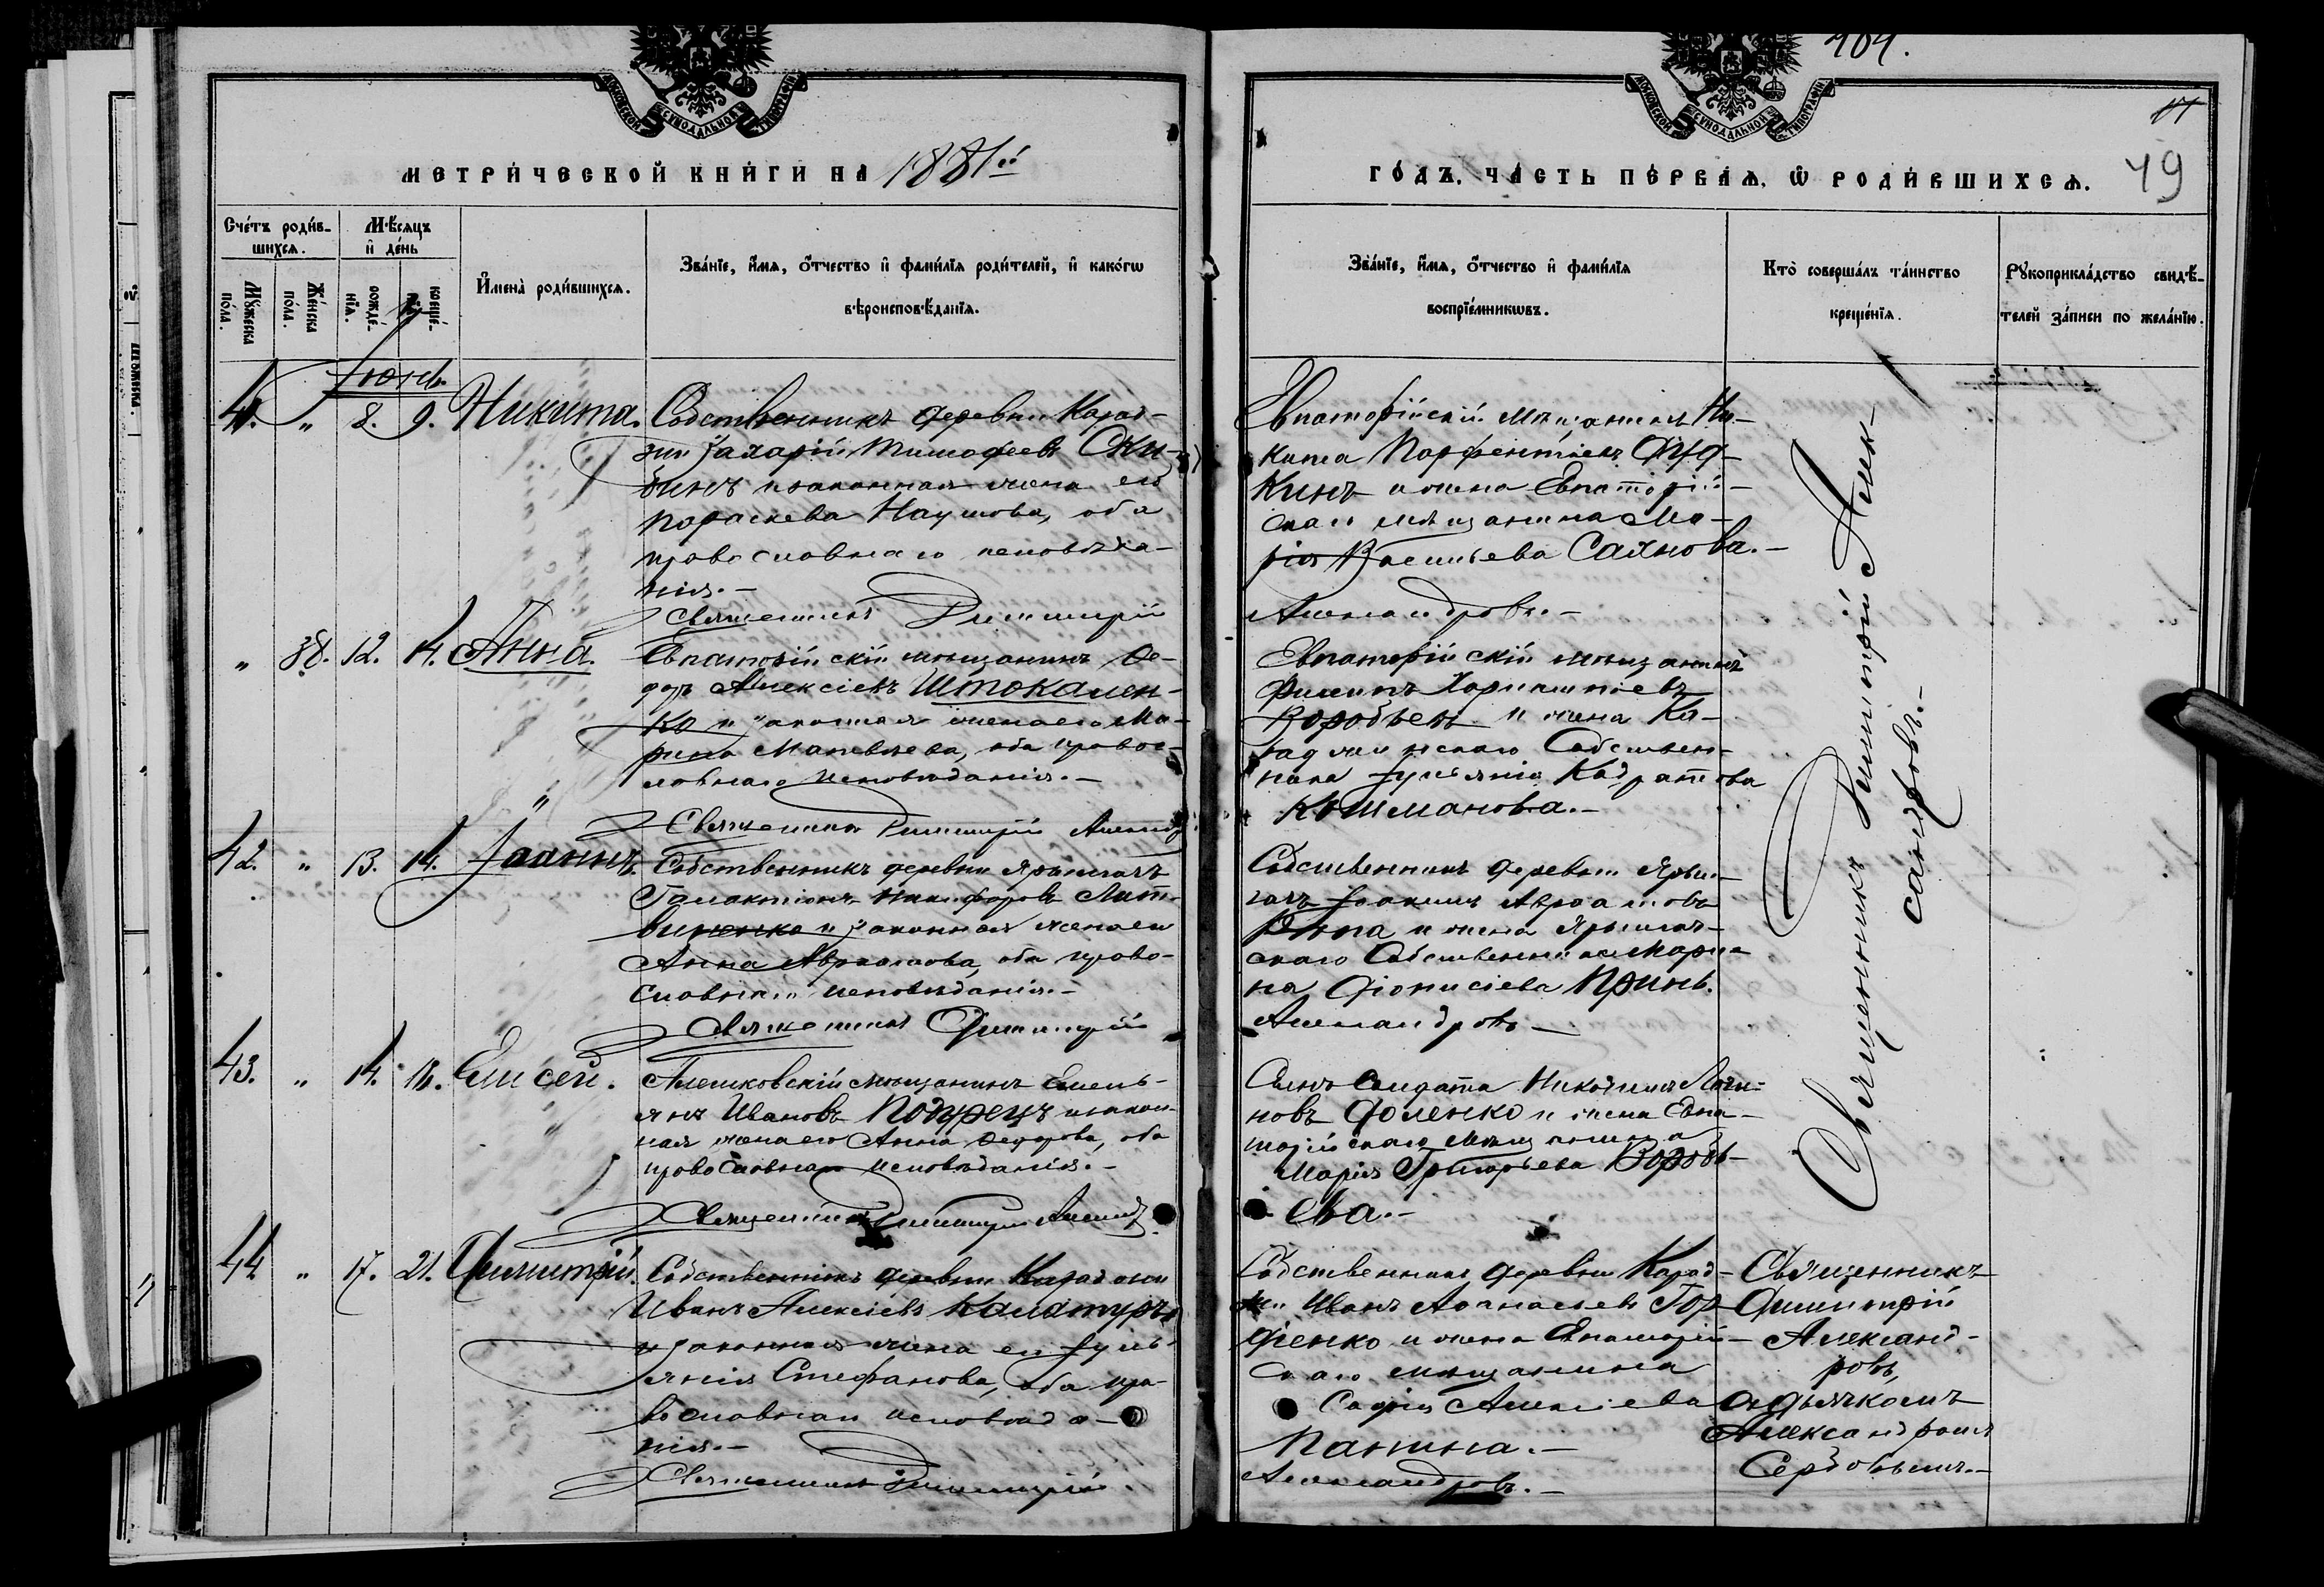 404.
МОСКОВСКОЙ СѴНОДАЛЬНОЙ ТИПОГРАФІИ
МОСКОВСКОЙ СѴНОДАЛЬНОЙ ТИПОГРАФІИ
49
МЕТРИ́ЧЕСКОЙ КНИ́ГИ НА 1881й
ГО́ДЪ. ЧА́СТЬ ПЕ́РВАЯ, Ѽ РОДИ́ВШИХСЯ.
Сче́тъ роди́в-
шихся.
Мѣ́сяцъ
и де́нь
Мꙋ́жеска
по́ла.
Же́нска
по́ла.
рожде́-
нїя.
креще́-
Имена̀ роди́вшихся.
Зва́нїе, и́мя, о́тчество и фами́лїя роди́телей, и како́гѡ
вѣроисповѣ́данїя.
Зва́нїе, и́мя, о́тчество и фами́лїя
воспрїе́мникѡвъ.
Кто̀ соверша́лъ та́инство
креще́нїя.
Рꙋкоприкла́дство свидѣ́-
телей за́писи по жела́нїю.
Іюнь.
41. „ 8. 9. Никита.
Собственникъ деревни Карад-
жи Захарій Тимофеевъ Ски-
бинъ и законная жена его
Параскева Наумова, оба
православнаго исповѣда-
нія.-
Священникъ Димитрій
Евпаторійскій мѣщанинъ Ни-
кита Парфентіевъ
кинъ и жена Евпаторій-
скаго мѣщанина Ма-
рія Васильева Сахнова.-
Александровъ.-
„ 38. 12. 14. Анна.
Евпаторійскій мѣщанинъ Ѳе-
доръ Алексіевъ Штокален-
ко и законная жена его Ма-
рина Матвѣева, оба правос-
лавнаго исповѣданія.-
Священникъ Димитрій Александ
Евпаторійскій мѣщанинъ
Филипъ Харлампіевъ
Воробьевъ и жена Ка-
раджинскаго Собствен-
ника Іуліянія Кадратова
Кошманова.-
42. „ 13. 14. Іоаннъ.
Собственникъ деревни Ярылгачъ
Галактіонъ Никифоровъ Лит-
виненко и законная жена его
Анна Авраамова, оба право-
славнаго исповѣданія.-
Священникъ Димитрій
Собственникъ деревни Ярыл-
гачъ Іоакимъ Авраамовъ
и жена Ярылгач-
скаго Собственника Мари-
на Діонисіева Принь.
Александровъ.-
43. „ 14. 18. Елисей.
Алешковскій мѣщанинъ Емель-
янъ Ивановъ и закон-
ная жена его Анна Ѳедорова, оба
православнаго исповѣданія.-
Священникъ Димитрій Александ
Сынъ Солдата Никодимъ Логи-
новъ Доленко и жена Евпа-
торійскаго мѣщанина
Марія Григорьева Воробь-
ева.-
Священникъ Димитрій Алек-
сандровъ.-
44 „ 17. 21. Димитрій.
Собственникъ деревни Караджи
Иванъ Алексіевъ Каламуръ
и законная жена его Іуль-
янія Стефанова, оба пра-
вославнаго исповѣда-
нія.-
Священникъ Димитрій.
Собственникъ деревни Карад-
жи Иванъ Афанасіевъ Гор-
діенко и жена Евпаторій-
скаго мѣщанина
Софія Алексіева
Панина.-
Александровъ.-
Священникъ
Димитрій
Александ-
ровъ,
съ дьячкомъ
Александромъ
Сербовымъ.-